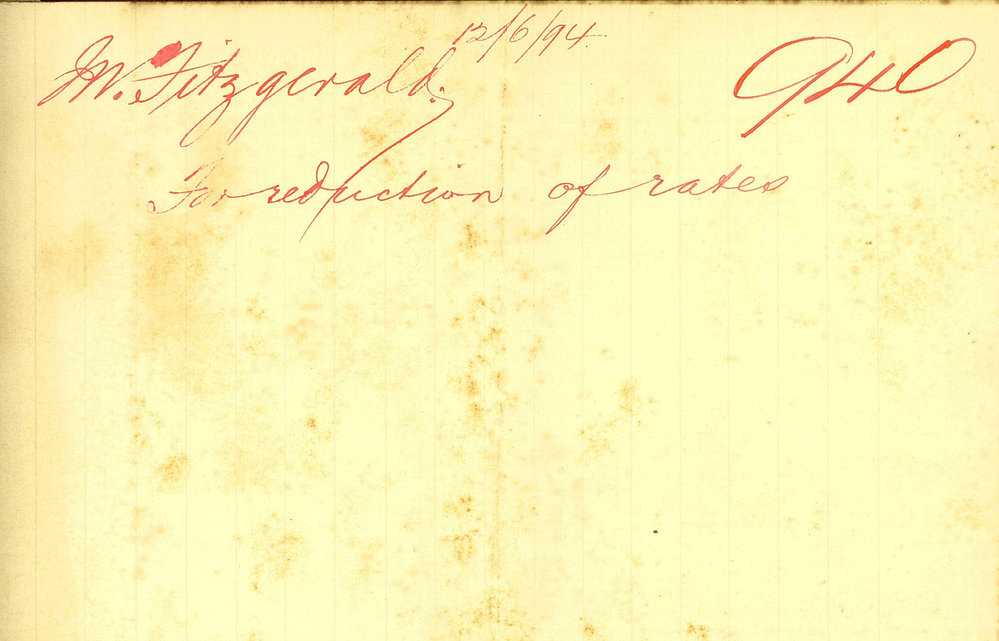 12/6/94
M. Fitzgerald. 940
For reduction of rates